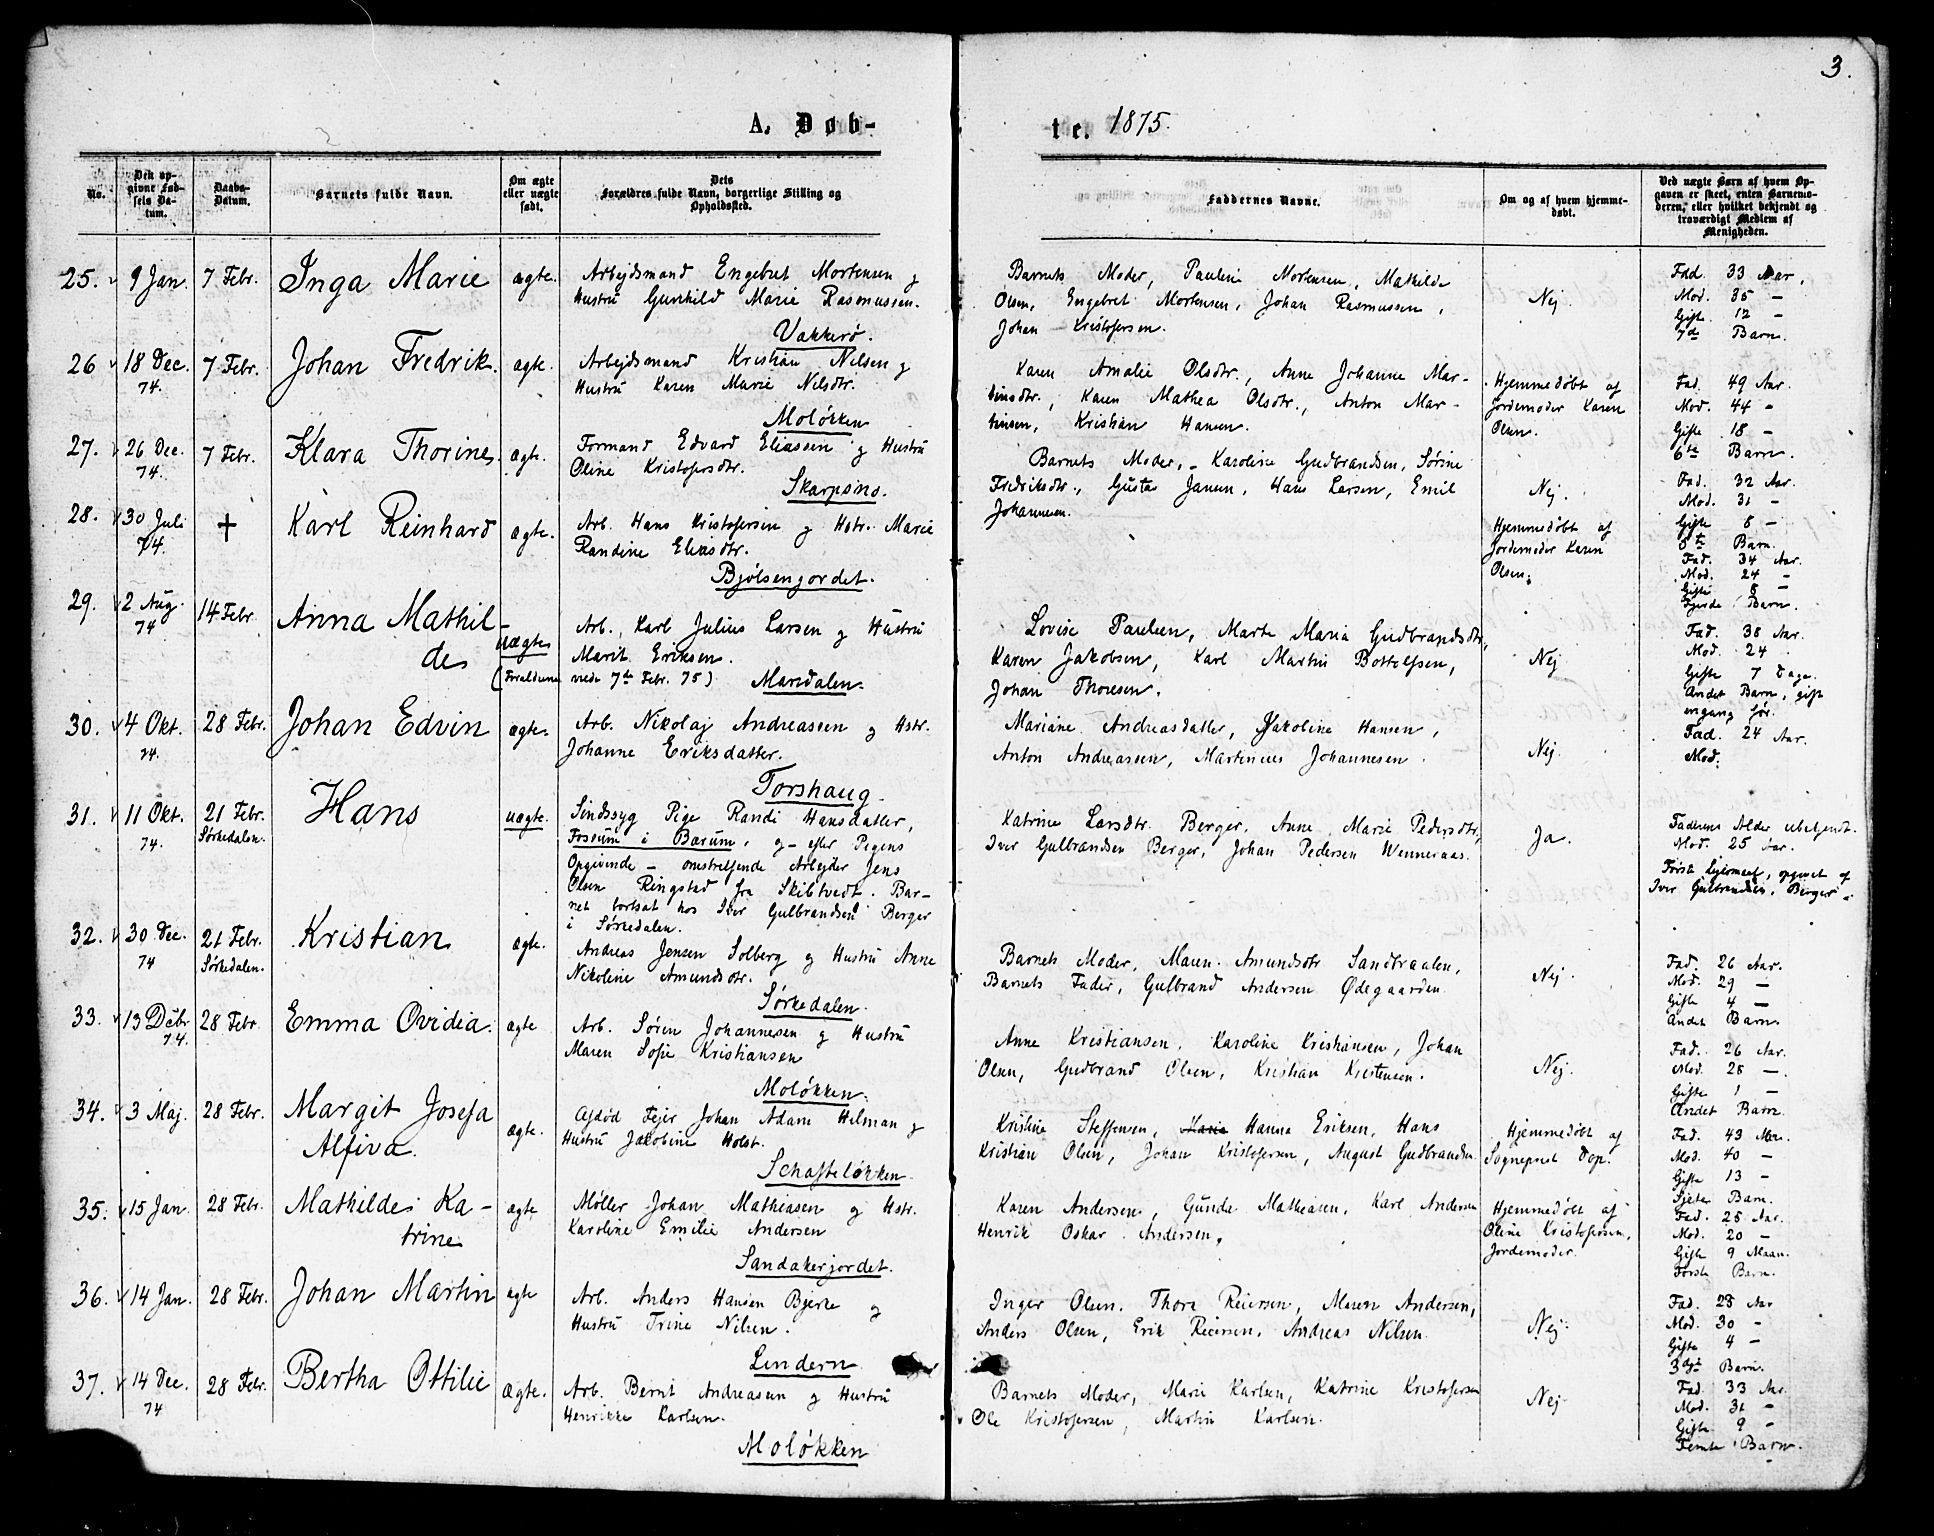 3.
A. Døb-
te. 1875.
No.
Den op-
givne Fød-
sels Da-
tum.
Daabs-
Datum.
Barnets fulde Navn.
Om ægte
eller uægte
født.
Dets
Forældres fulde Navn, borgerlige Stilling og
Opholdssted.
Faddernes Navne.
Om og af hvem hjemme-
døbt.
Ved uægte Børn af hvem Op-
gaven er skeet, enten Barnemo-
deren, eller hvilket bekjendt og
troværdigt Medlem af
Menigheden.
25. 9 Jan. 7 Febr. Inga Marie ægte.
Arbejdsmand Engebret Mortensen og
Hustru Gunhild Marie Rasmussen.
Vækkerø.
Barnets Moder, Pauline Mortensen, Mathilde
Olsen, Engebret Mortensen, Johan Rasmussen,
Johan Kristofersen.
Nej.
Fad. 33 Aar,
Mod. 35 –
Gifte 12 –
7de Barn.
26 18 Dec. 74. 7 Febr. Johan Fredrik. ægte.
Arbejdsmand Kristian Nilsen og
Hustru Karen Marie Nilsdtr.
Moløkken
Karen Amalie Olsdtr., Anne Johanne Mar-
tinsdtr., Karen Mathea Olsdtr., Anton Mar-
tinsen, Kristian Hansen.
Hjemmedøbt af
Jordemoder Karen
Olsen.
Fad. 49 Aar.
Mod. 44 –
Gifte 18 –
6te Barn.
27. 26 Dec. 74. 7 Febr. Klara Thorine. ægte.
Formand Edvard Eliassen og Hustru
Oline Kristofersdtr.
Skarpsno.
Barnets Moder, Karoline Gudbrandsen, Sørine
Fredriksdtr., Gustav Jansen, Hans Larsen, Emil
Johannesen.
Nej.
Fad. 32 Aar.
Mod. 31 –
Gifte 8 –
5te Barn.
28. 30 Juli 74. † Karl Reinhard ægte.
Arb. Hans Kristofersen og Hstr. Marie
Randine Eliasdtr.
Bjølsenjordet.
Hjemmedøbt af
Jordemoder Karen
Olsen.
Fad. 34 Aar.
Mod. 24 –
Gifte 8 –
Fjerde Barn.
29. 2 Aug. 74 14 Febr. Anna Mathil-
de uægte
Arb. Karl Julius Larsen og Hustru
Marit Eriksen.
(Forældrene viede 7de Febr. 75) Maridalen.
Lovise Paulsen, Marte Maria Gudbrandsdtr,
Karen Jakobsen, Karl Martin Bottolfsen,
Johan Thoresen.
Nej
Fad. 38 Aar.
Mod. 24
Gifte 7 Dage.
Andet Barn, gift
engang før.
30. 4 Okt. 74. 28 Febr. Johan Edvin ægte.
Arb. Nikolaj Andreassen og Hstr.
Johanne Eriksdatter.
Torshaug
Mariane Andreasdatter, Jakoline Hansen,
Anton Andreassen, Martinius Johannesen.
Nej.
Fad. 24 Aar.
Mod.
31. 11 Okt. 74. 21 Febr. Sørkedalen. Hans uægte.
Sindssyg Pige Randi Hansdatter,
Fossum i Bærum, og – efter Pigens
Opgivende – omstreifende Arbejder Jens
Olsen Ringstad fra Skibtvedt. Bar-
net bortsat hos Iver Gulbrandsen Berger
i Sørkedalen.
Katrine Larsdtr. Berger, Anne Marie Pedersdtr,
Iver Gulbrandsen Berger, Johan Pedersen Wenneraas.
Ja.
Faderens Alder ubekjendt.
Mod. 25 Aar.
Første Lejermaal, opgivet af
Iver Gulbrandsen Berger.
32. 30 Dec. 74 21 Febr. Sørkedalen. Kristian ægte.
Andreas Jensen Solberg og Hustru Anne
Nikoline Amundsdtr.
Sørkedalen.
Barnets Moder, Maren Amundsdtr Sandbraaten,
Barnets Fader, Gulbrand Andersen Ødegaarden.
Nej.
Fad. 26 Aar.
Mod. 29 –
Gifte 4 –
Andet Barn.
33. 13 Decbr 74. 28 Febr. Emma Ovidia. ægte
Arb. Søren Johannesen og Hustru
Maren Sofie Kristiansen
Moløkken.
Anne Kristiansen, Karoline Kristiansen, Johan
Olsen, Gudbrand Olsen, Kristian Kristensen.
Nej.
Fad. 26 Aar.
Mod. 28 –
Gifte 1 –
Andet Barn.
34. 3 Maj. 28 Febr. Margit Josefa
Alfiva. ægte.
Afdød Fejer Johan Adam Helman og
Hustru Jakobine Holst.
Schafteløkken.
Kristine Steffensen, Hanna Eriksen, Hans
Kristian Olsen, Johan Kristofersen, August Gudbrandsen
Hjemmedøbt af
Sogneprest Dop.
Fad. 43 Aar.
Mod. 40 –
Gifte 13 –
Sjette Barn.
35. 15 Jan. 28 Febr. Mathilde Ka-
trine ægte
Møller Johan Mathiasen og Hstr.
Karoline Emilie Andersen
Sandakerjordet.
Karen Andersen, Gunda Mathiasen, Karl Andersen
Henrik Oskar Andersen.
Hjemmedøbt af
Oline Kristofersen,
Jordemoder.
Fad. 25 Aar.
Mod. 20 –
Gifte 9 Maan.
Første Barn.
36. 14 Jan. 28 Febr. Johan Martin ægte
Arb. Anders Hansen Bjerke og
Hustru Trine Nilsen.
Lindern
Inger Olsen. Thora Reiersen, Maren Andersen,
Anders Olsen, Erik Reiersen, Andreas Nilsen.
Nej.
Fad. 28 Aar
Mod. 30 –
Gifte 4 –
3die Barn.
37. 14 Dec. 74 28 Febr. Bertha Ottilie ægte.
Arb. Bernt Andreassen og Hustru
Henrikke Karlsen.
Moløkken
Barnets Moder, Marie Karlsen, Katrine Kristofersen
Ole Kristofersen, Martin Karlsen.
Nej.
Fad. 33 Aar.
Mod. 31 –
Gifte 9 –
Femte Barn.